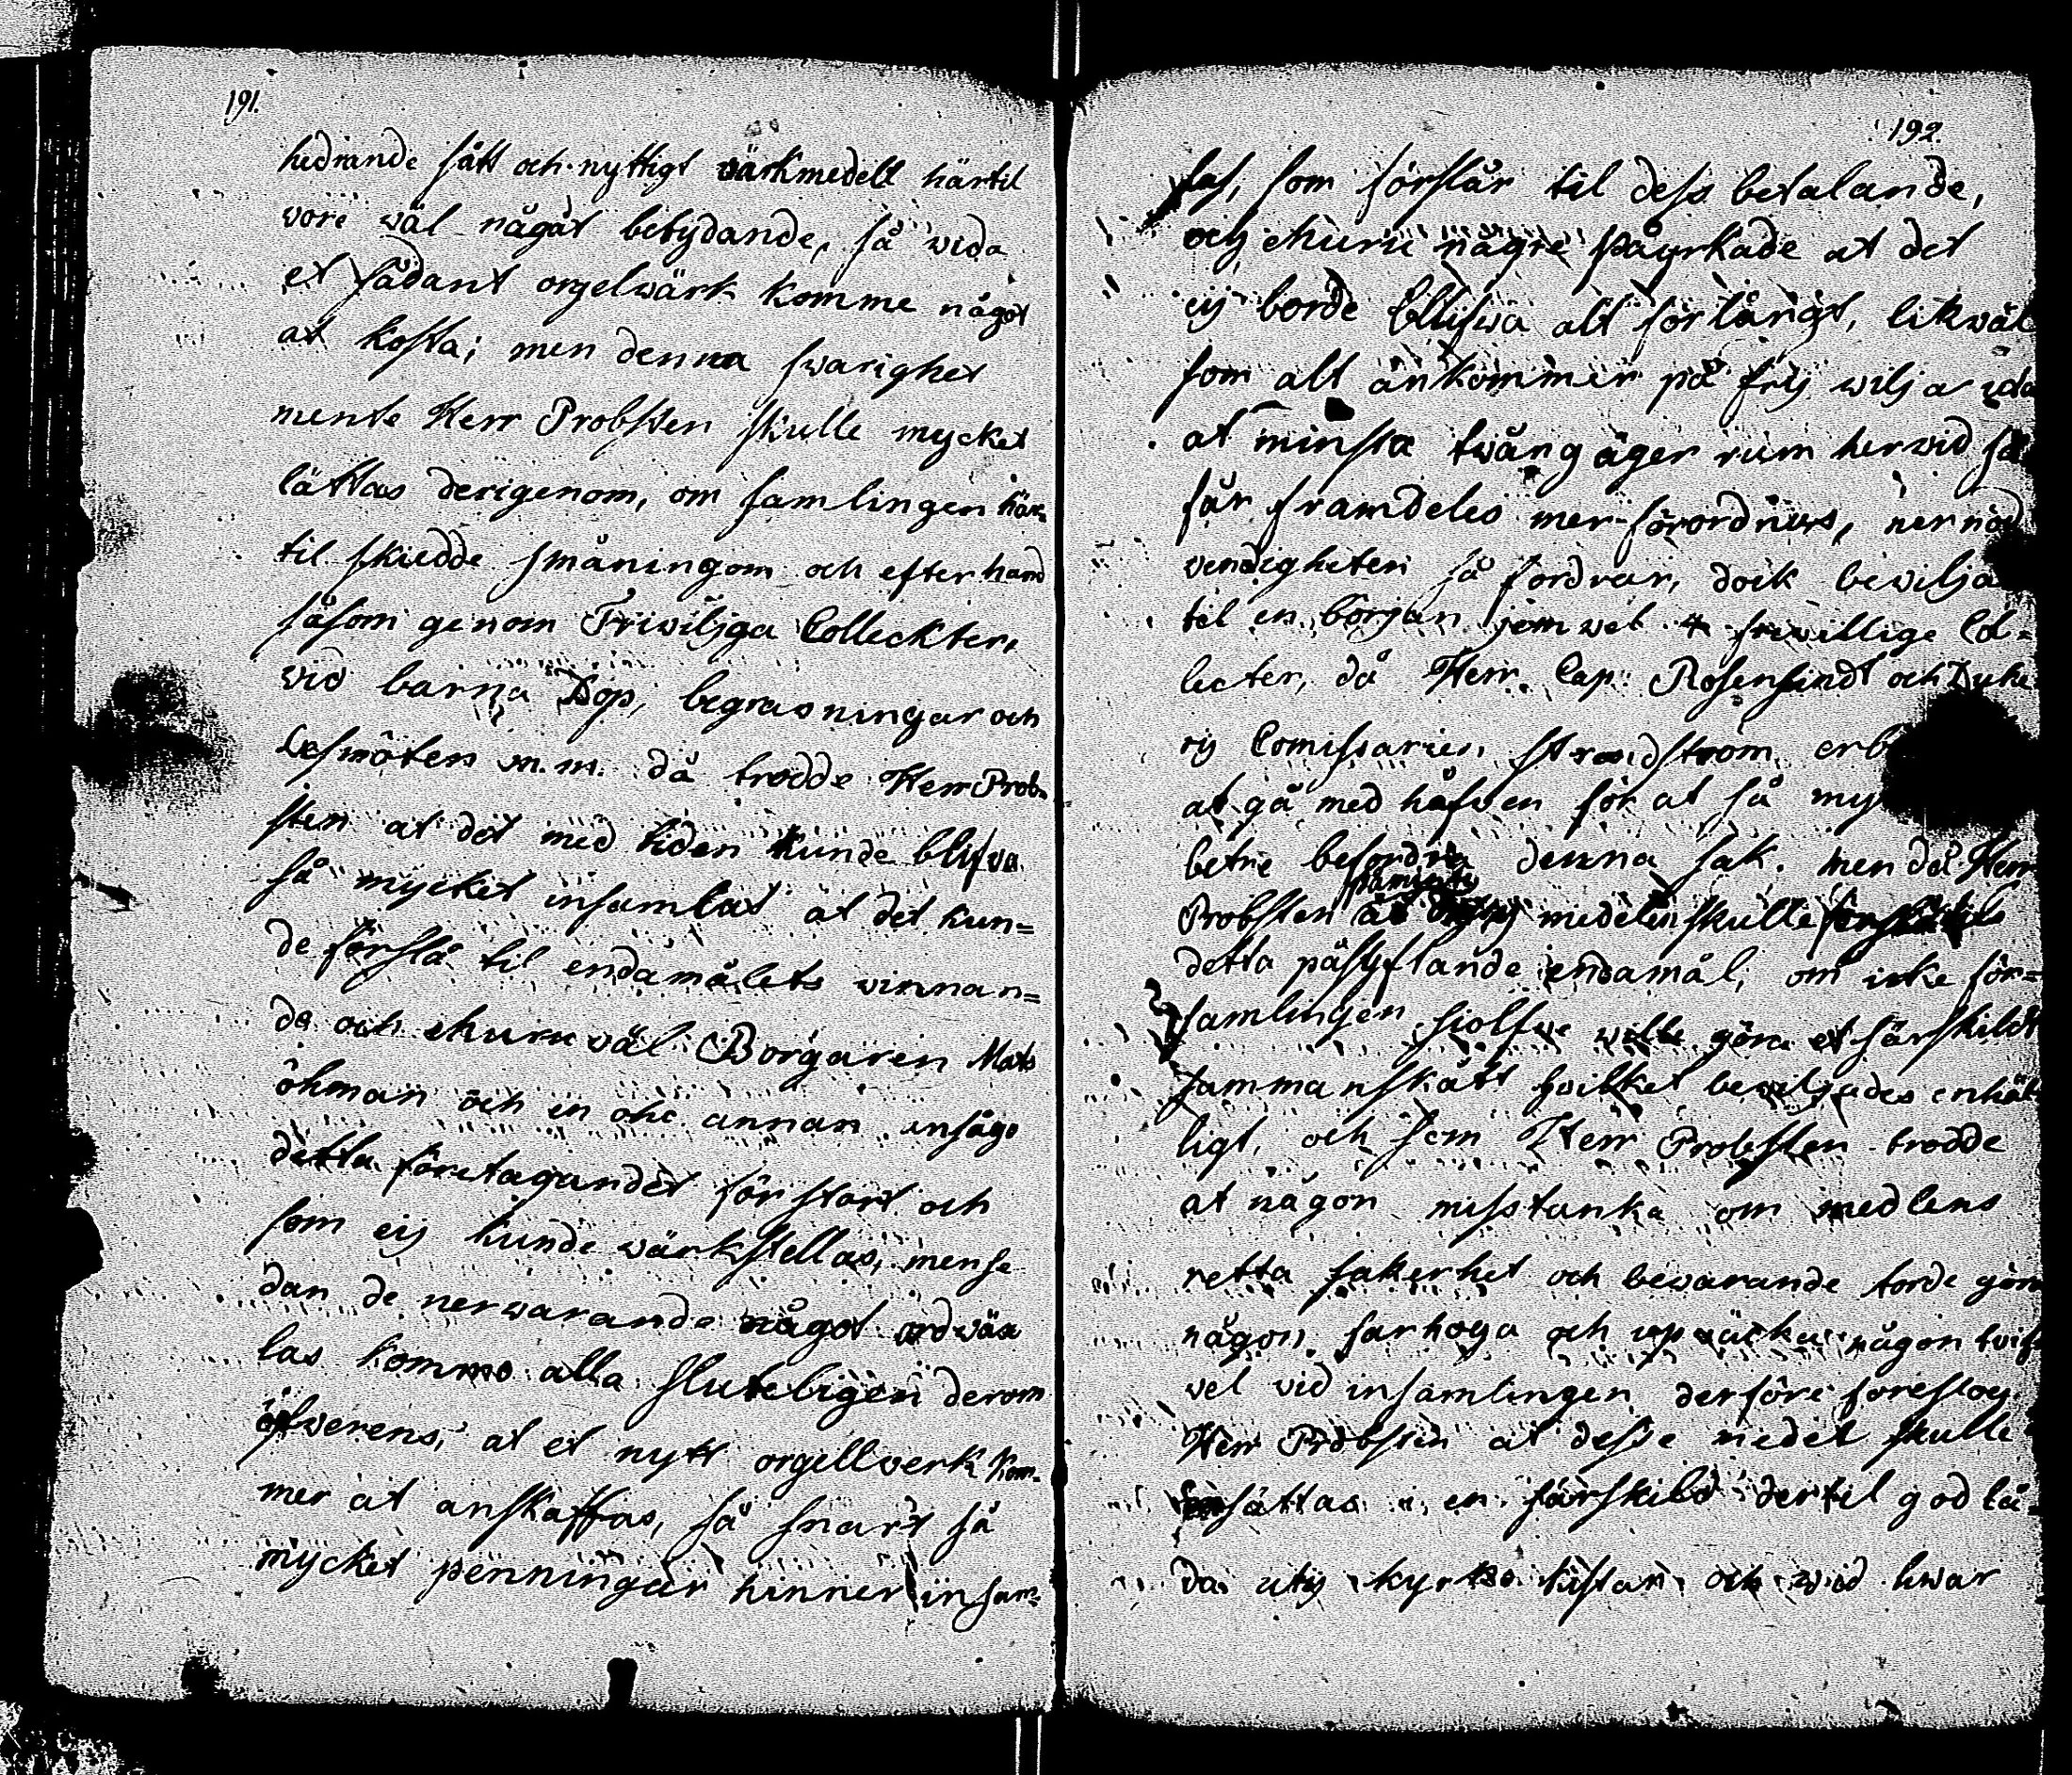 191.
hedrande sätt och nyttigt värkmedell härtil
vore wäl något betydande, så vida
et sådant orgelwärk komme något
at kosta; men denna swarighet
mente Herr Probsten skulle mycket
lättas derigenom, om samlingen här-
til skiedde småningom och efter hand
såsom genom Friviljga Colleckter,
vid barna Dop, begrasningar och
Lesmöten m.m. då trodde Herr Prob-
sten at det med tiden kunde blifva
så mycket insamlat at det kun=
de förslå til endamålets vinnan=
de och ehuru väl Borgaren Mats
öhman och en ohc annan ansågo
detta företagandet för stort och
som eij kunde wärkstellas, men se
dan de nerwarande något ordväx
las kommo alla sluteligen derom
öfverens, at et nytt orgellverk kom-
mer at anskaffas, så snart så
mycket penningar hinner insam-
192.
las, som förslår til dess betalande,
och ehuru någre påyrkade at det
eij borde blifwa alt för långt, likväl
som alt ankommer på frij wilja uta
at minsta twång äger rum hervid så
får framdeles mer förordnas, ner nöd
vendigheten så fordrar, doch bevilja
til en början jemvel 4 frevillige Col=
lecter, då Herr Cap: Rosensindt och Tuke
rij Comissarien, strandström erb
at gå med håfven för at så my
betre befordra denna sak. men då Herr
Probsten påminte medelen skulle
detta påsyftande endamål, om icke för=
samlingen siolfve wille göra et särskildt
sammanskått hvilket beviljades enhäl
ligt, och som Herr Probsten trodde
at någon misstanka om medlens
retta sakerhet och bewarande torde göra
någon farhoga och upväcka någon tvif
vel vid insamlingen, derföre foreslog
Herr Probsten at desse medel skulle
insättas i en särskild dertil god lå-
da utij kyrko kistan och wid hwar